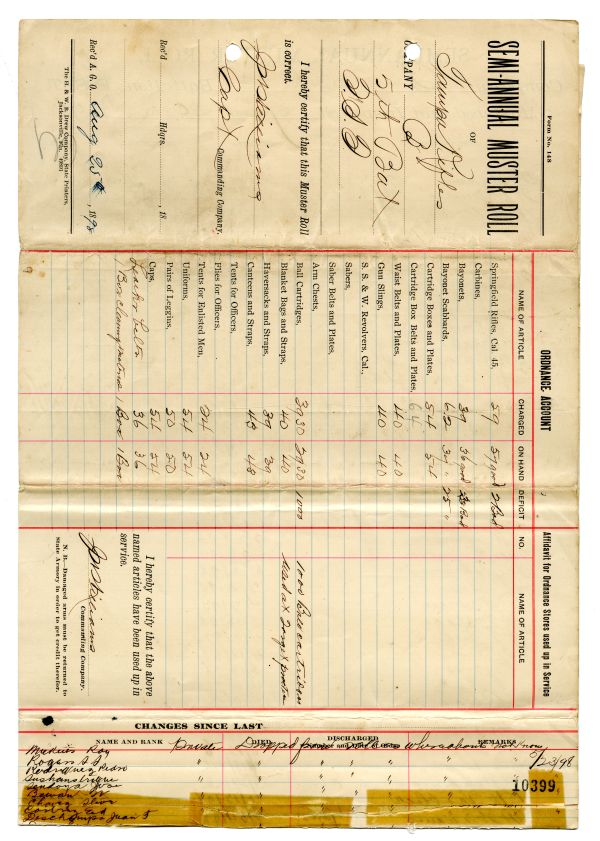 Form No. 148
SEMI-ANNUAL MUSTER ROLL
OF
Tampa Rifles
COMPANY B
5th Bat
F. S. T.
I hereby certify that this Muster Roll
is correct.
J W Williams
Capt Commanding Company.
Rec'd Hdqrs. 18
Rec'd A. G. O. Aug 25th, 1898
The H. & W. B. Drew Company, State Printers,
Jacksonville, Fla.
ORDNANCE ACCOUNT
NAME OF ARTICLE CHARGED ON HAND DEFICIT
Springfield Rifles, Cal. 45, 59 57 good 2 Bad
Carbines,
Bayonets, 39 36 good Bad
Bayonet Scabbards, 62 37 " 25 "
Cartridge Boxes and Plates, 54 54
Cartridge Box Belts and Plates, 64
Waist Belts and Plates, 40 40
Gun Slings, 40 40
S. S. & W. Revolvers, Cal.,
Sabers,
Saber Belts and Plates,
Arm Chests,
Ball Cartridges, 3930 2930 1000
Blanket Bags and Straps, 40 40
Haversacks and Straps, 39 39
Canteens and Straps, 48 48
Tents for Officers,
Flies for Officers,
Tents for Enlisted Men, 24 24
Uniforms, 54 54
Pairs of Leggins, 50 50
Caps, 54 54
Leather belts 36 36
1 Box cleaning material 1 Box 1 Box
Affidavit for Ordnance Stores used up in Service
NO. NAME OF ARTICLE
1000 Ball cartridges
used at Target practice
I hereby certify that the above
named articles have been used up in
service.
J W Williams
Commanding Company.
N. B. Damaged arms must be returned to
State Armory in order to get credit therefor.
CHANGES SINCE LAST
NAME AND RANK DIED DISCHARGED REMARKS
Roy Private Dropped from whereabouts not know
Rogan " " " " 7/23/98
Rodriguez " " " "
Enrique " " "
Jose " " "
Bowan " " "
Chavez " " "
" " "
Deschamps Juan F " " "
10399